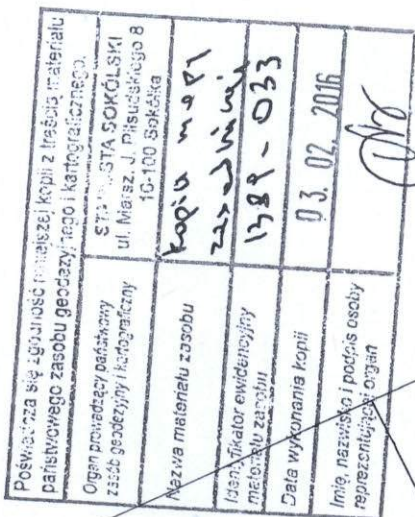 Poświadcza się zgodność niniejszej kopii z treścią materiału
państwowego zasobu geodezyjnego i kartograficznego.
Organ prowadzący państwowy
zasób geodezyjny i kartograficzny
STAROSTA SOKÓLSKI
ul. Marsz. J. Piłsudskiego 8
16-100 Sokółka
Nazwa materiału zasobu
kopia mapy
zasadniczej
Identyfikator ewidencyjny
materiału zasobu
1389-033
Data wykonania kopii
03. 02. 2016
Imię, nazwisko i podpis osoby
reprezentującej organ